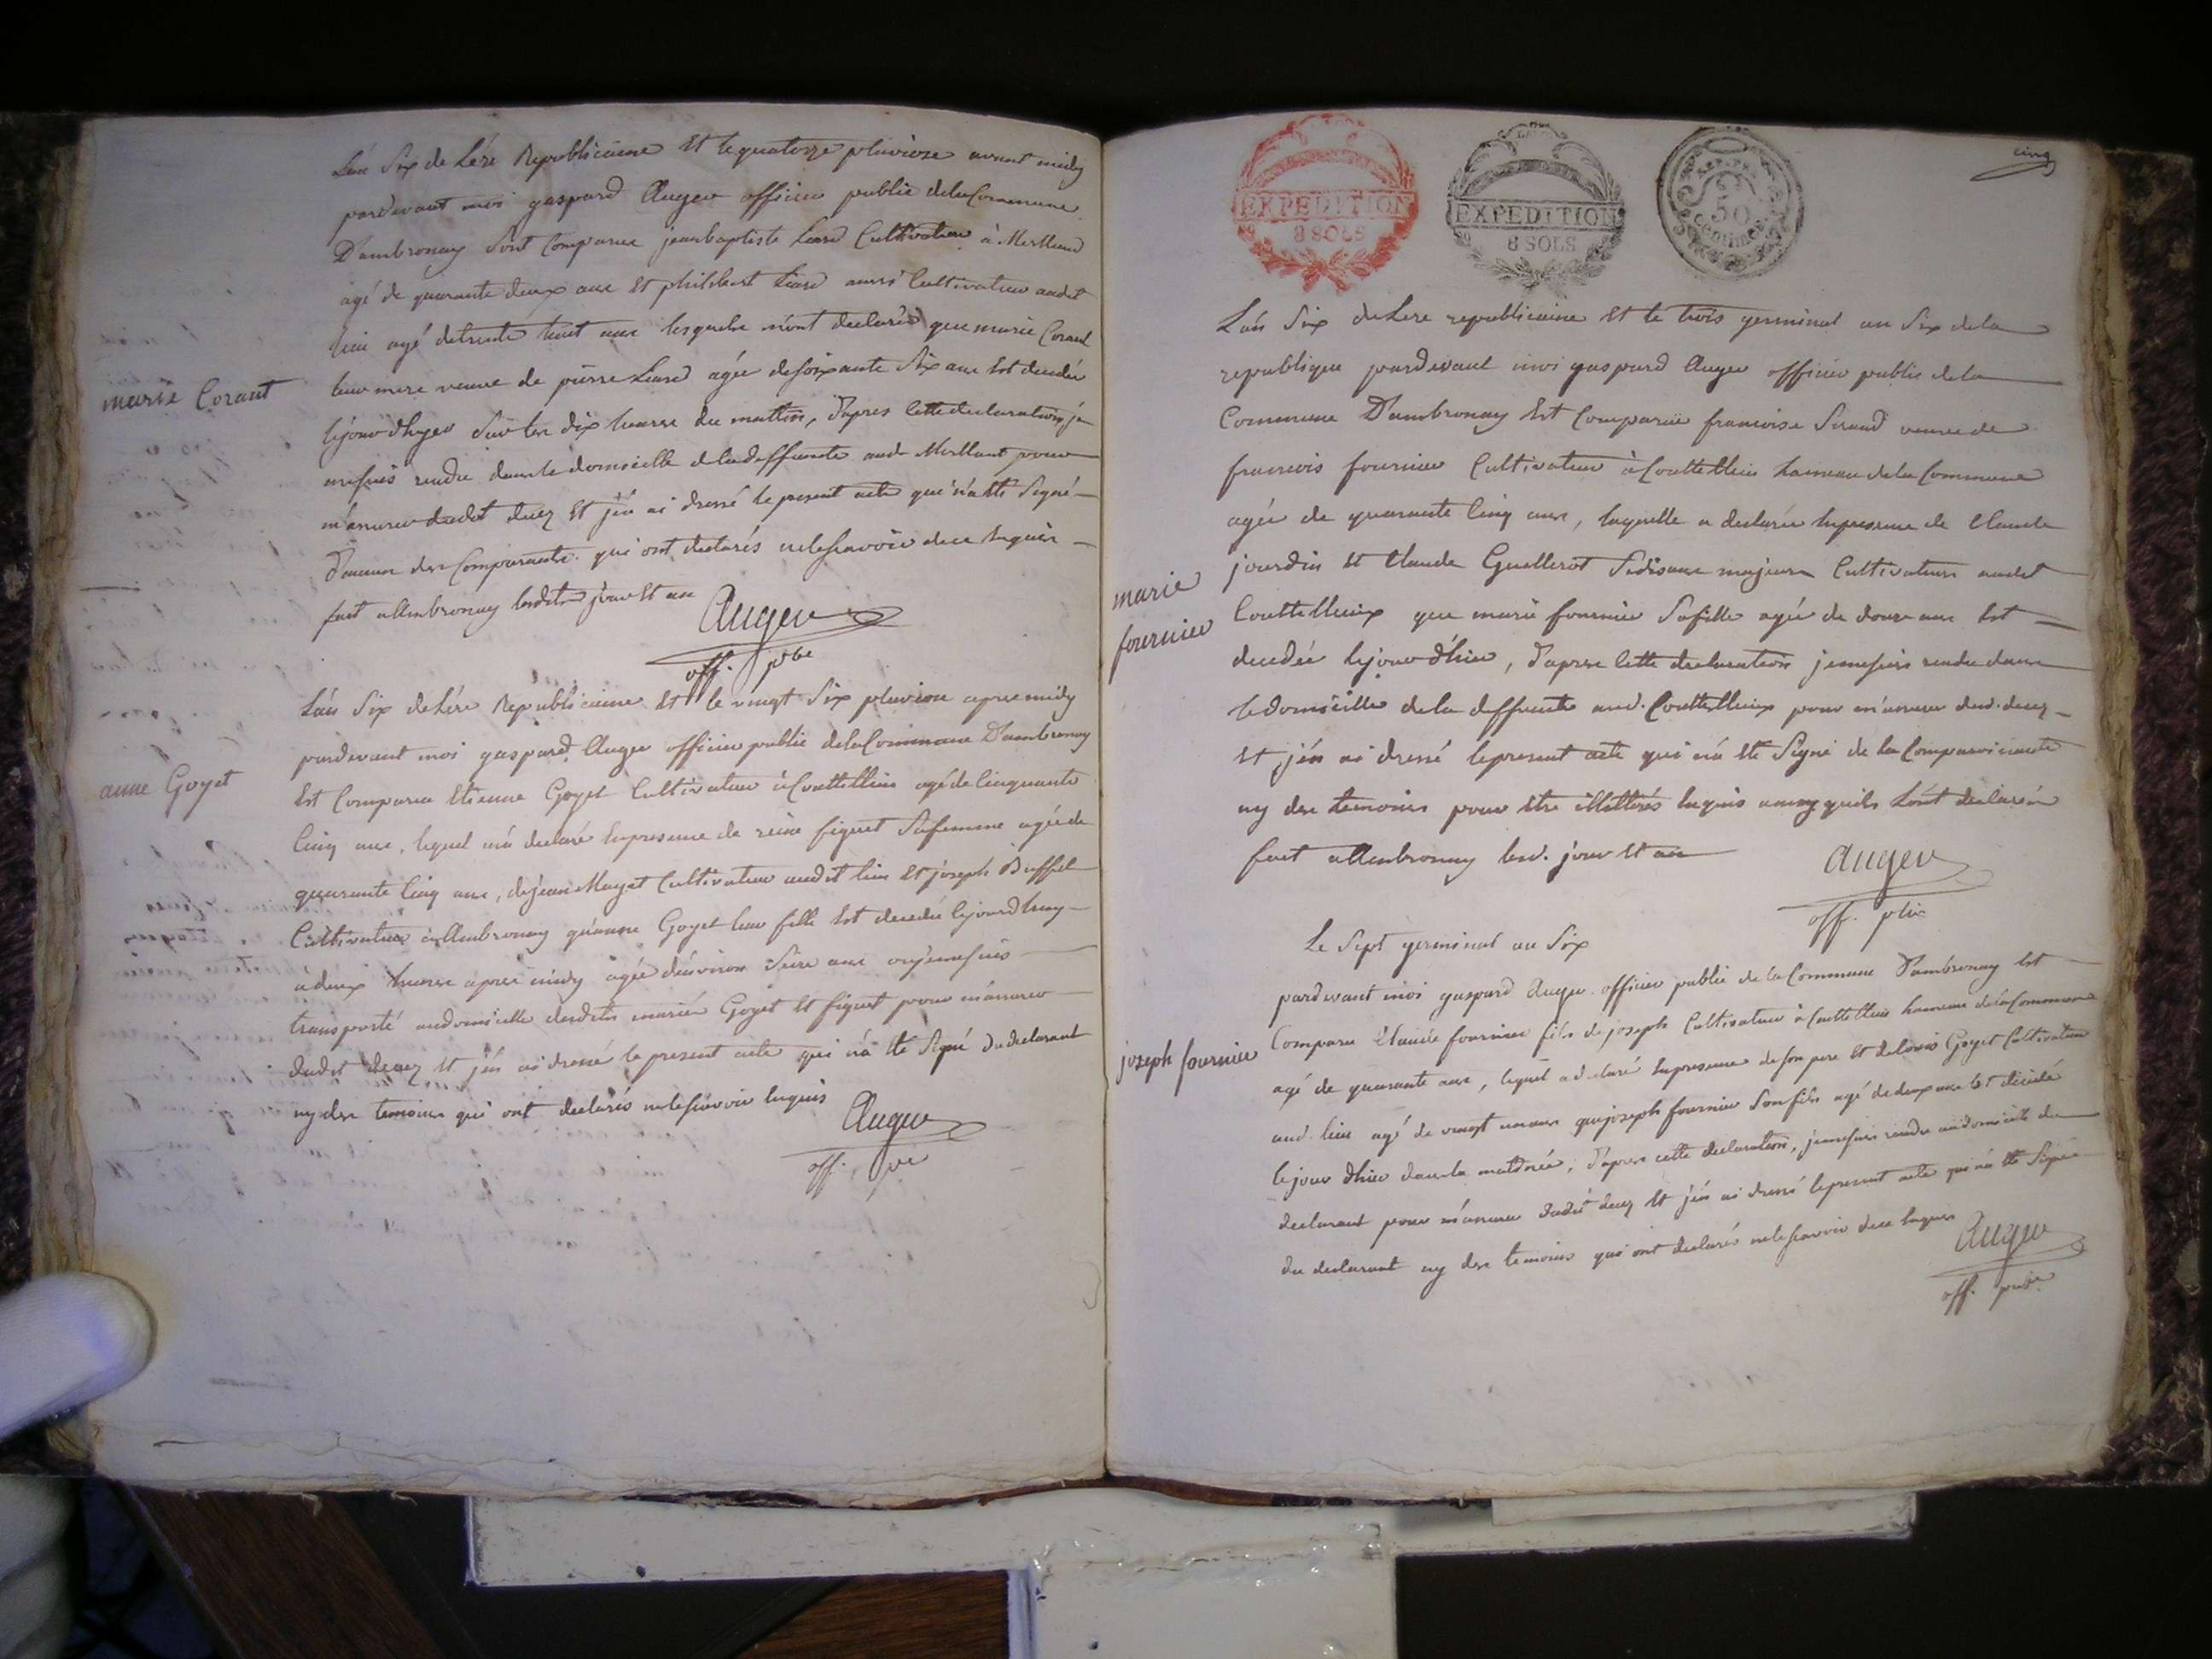 L'án Six de L'ére Republicaine Et le quatorze pluviose avant midy
pardevant moi gaspard Auger officier public de la Commune
D'ambronay Sont Comparus jean baptiste Liard Cultivateur à Merland
agé de quarante deux ans Et philibert Liard aussi Cultivateur audit
lieu agé de trente huit ans lesquels m'ont declarés que marie Corant
marie Corant
leur mere veuve de pierre Liard agée de soixante Six ans Est decedée
le jour d'hyer Sur les dix heures du mattin, d'apres cette declaration, je
me suis rendu dans le domicille de la deffunte aud. Merlland pour
m'assurer dudit decez Et j'én ai dressé le present acte qui n'a été Signé
d'aucun des Comparants qui ont declarés ne le scavoir de ce enquis
fait a Ambronay lesdits jour Et an
Auger
off. pbe
L'án Six de L'ére Republicaine Et le vingt Six pluviose apres midy
pardevant moi gaspard Auger officier public de la Commune D'ambronay
anne Goyet
Est Comparu Etienne Goyet Cultivateur à Couttellieu agé de Cinquante
Cinq ans, lequel m'á declaré En presence de reine figuet Sa femme agée de
quarante Cinq ans, de jean Mayet Cultivateur audit lieu Et joseph Buffet
Cultivateur à Ambronay qu'anne Goyet leur fille Est decedée ce jourd'huy
à deux heures apres midy agée d'énviron Seize ans ou je me suis
transporté au domicille desdits mariés Goyet Et figuet pour m'assurer
dudit decez Et j'én ai dressé le present acte qui n'á été Signé du declarant
ny des temoins qui ont declarés ne le scavoir Enquis
Auger
off. pbe
EXPEDITION
8 SOLS
EXPEDITION
8 SOLS
50
Centimes
cinq
L'án Six de L'ere republicaine Et le trois germinal an Six de la
republique pardevant moi gaspard Auger officier public de la
Commune D'ambronay Est Comparüe francoise Siraud veuve de
francois fournier Cultivateur à Couttellieu hameau de la Commune
agée de quarante Cinq ans, laquelle a declarée En presence de Claude
jourdin Et Claude Guellerot Se disans majeurs Cultivateurs audit
marie
fournier
Couttellieux que marie fournier Sa fille agée de douze ans Est
decedée le jour d'hier, d'apres Cette declaration je me suis rendu dans
le domicille de la deffunte aud. Couttellieux pour m'assurer dud. decez
Et j'én ai dressé le present acte qui n'á été Signé de la Comparoissante
ny des temoins pour être illitterés Enquis ainsy qu'ils L'ont declarés
fait a Ambronay lesd. jour Et an
Auger
off. pbe
Le Sept germinal an Six
pardevant moi gaspard Auger officier public de la Commune D'ambronay Est
Comparu Claude fournier fils de joseph Cultivateur à Couttellieu hameau de la Commune
joseph fournier
agé de quarante ans, lequel a declaré En presence de son pere Et de louis Goyet Cultivateur
aud. lieu agé de vingt un ans que joseph fournier Son fils agé de deux ans Est décédé
le jour d'hier dans la matinée, d'apres cette declaration, je me suis rendu au domicile du
declarant pour m'assurer dudit decez Et j'én ai dressé le present acte qui n'á été Signé
du declarant ny des temoins qui ont declarés ne le scavoir de ce Enquis
Auger
off. pube